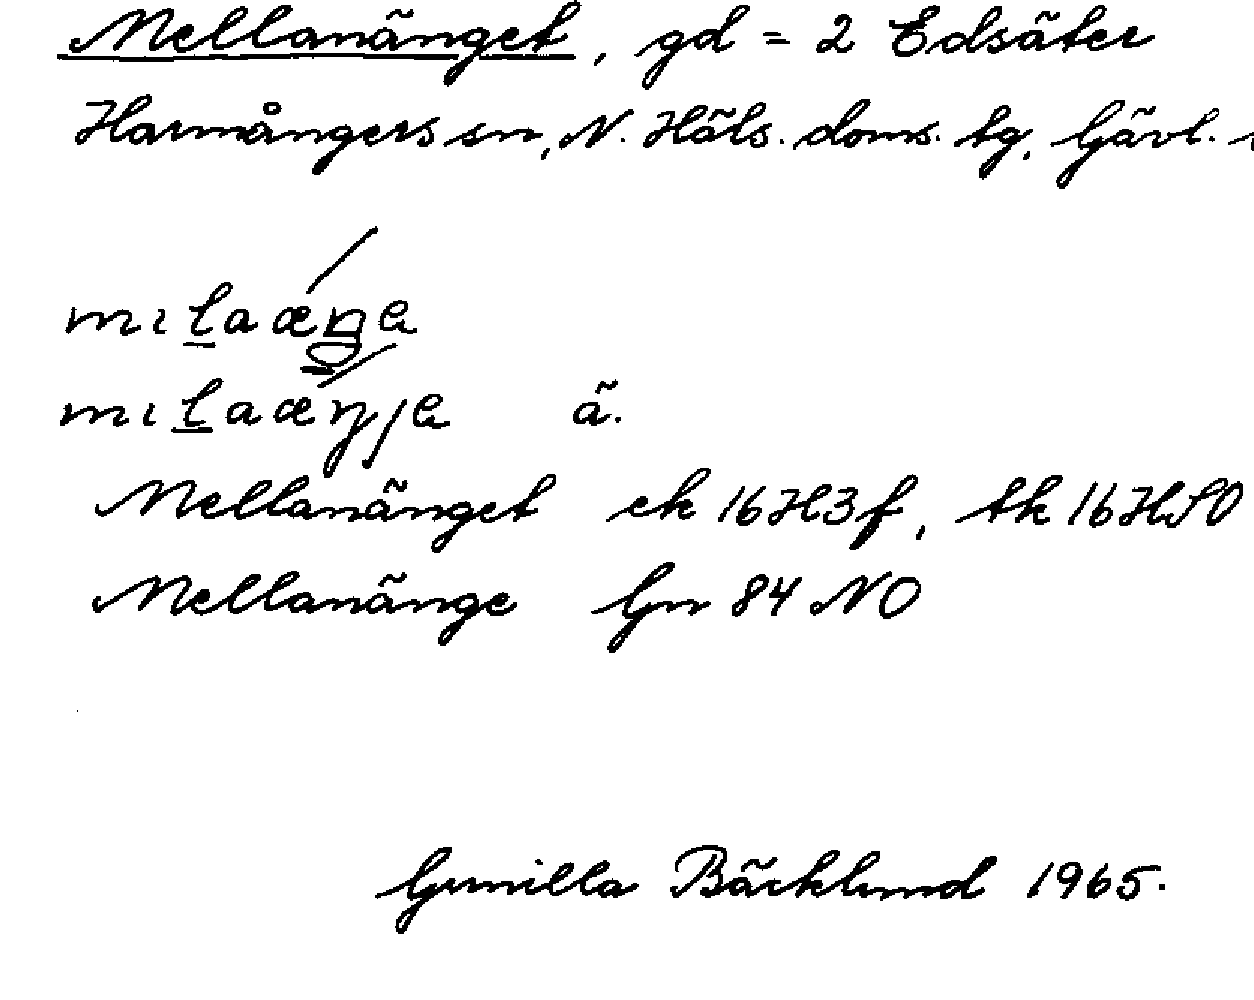 Mellanänget, gd = 2 Edsäter
Harmångers sn, N. Häls. doms. tg, Gävl.
mıɫaæŋe
mıɫaæŋje ä.
Mellanänget ek 16H3f, tk 16HSO
Mellanänge Gn 84 NO
Gunilla Bäcklund 1965.